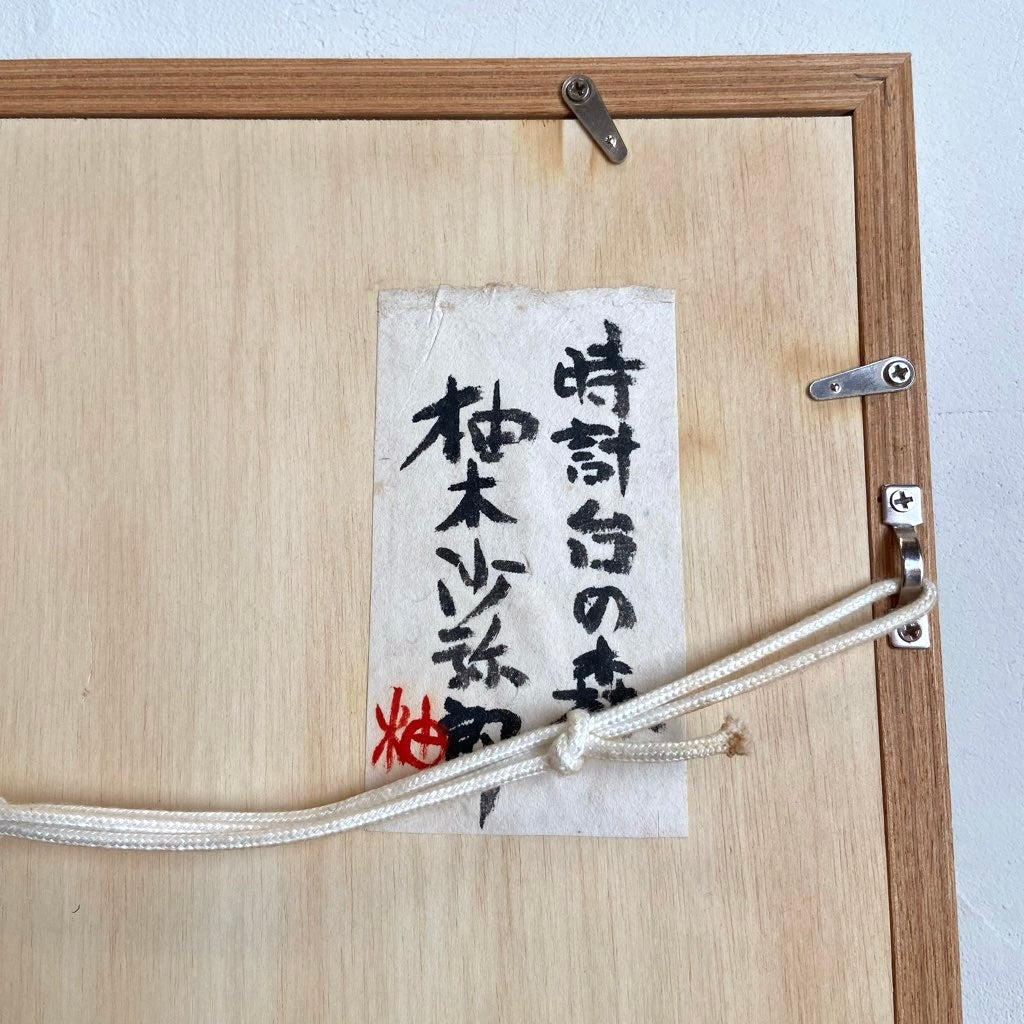 時計台の森
柚木沙弥郎
柚